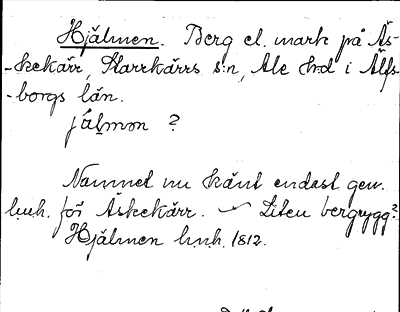 Hjälmen. Berg el. mark på Äs-
-kekärr, Starrkärrs s:n, Ale h:d i Älfs-
-borgs län.
jälmen ?
Namnet nu känt endast gen.
luh. för Äskekärr. Liten bergrygg?
Hjälmen luh. 1812.